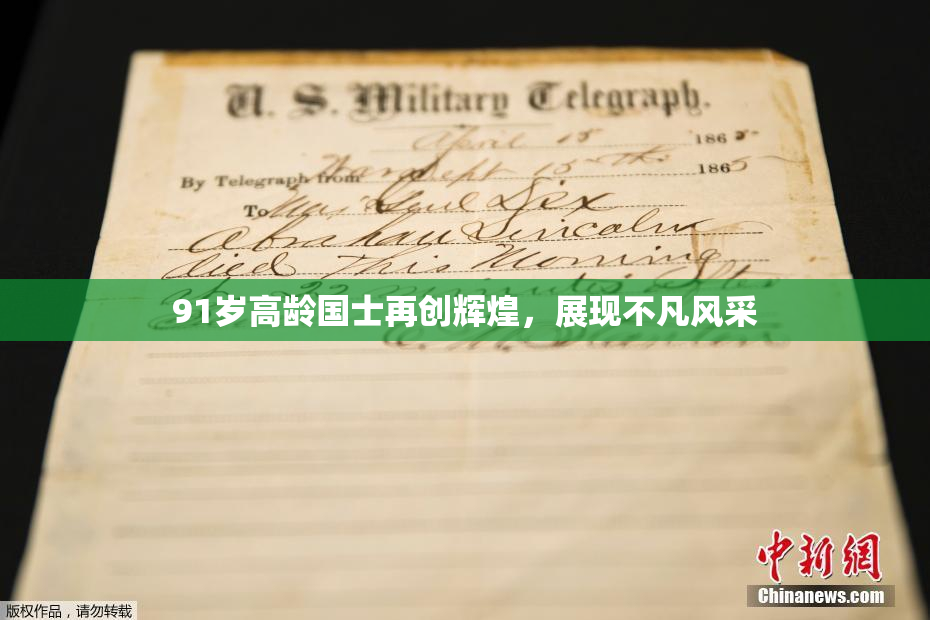 U. S. Military Telegraph.
April 15 1865
By Telegraph from War Dept 15th 1865
To Maj Genl Dix
Abraham Lincoln
died This Morning
22 minutes after
91岁高龄国士再创辉煌，展现不凡风采
E. M. Stanton
中新网
Chinanews.com
版权作品，请勿转载